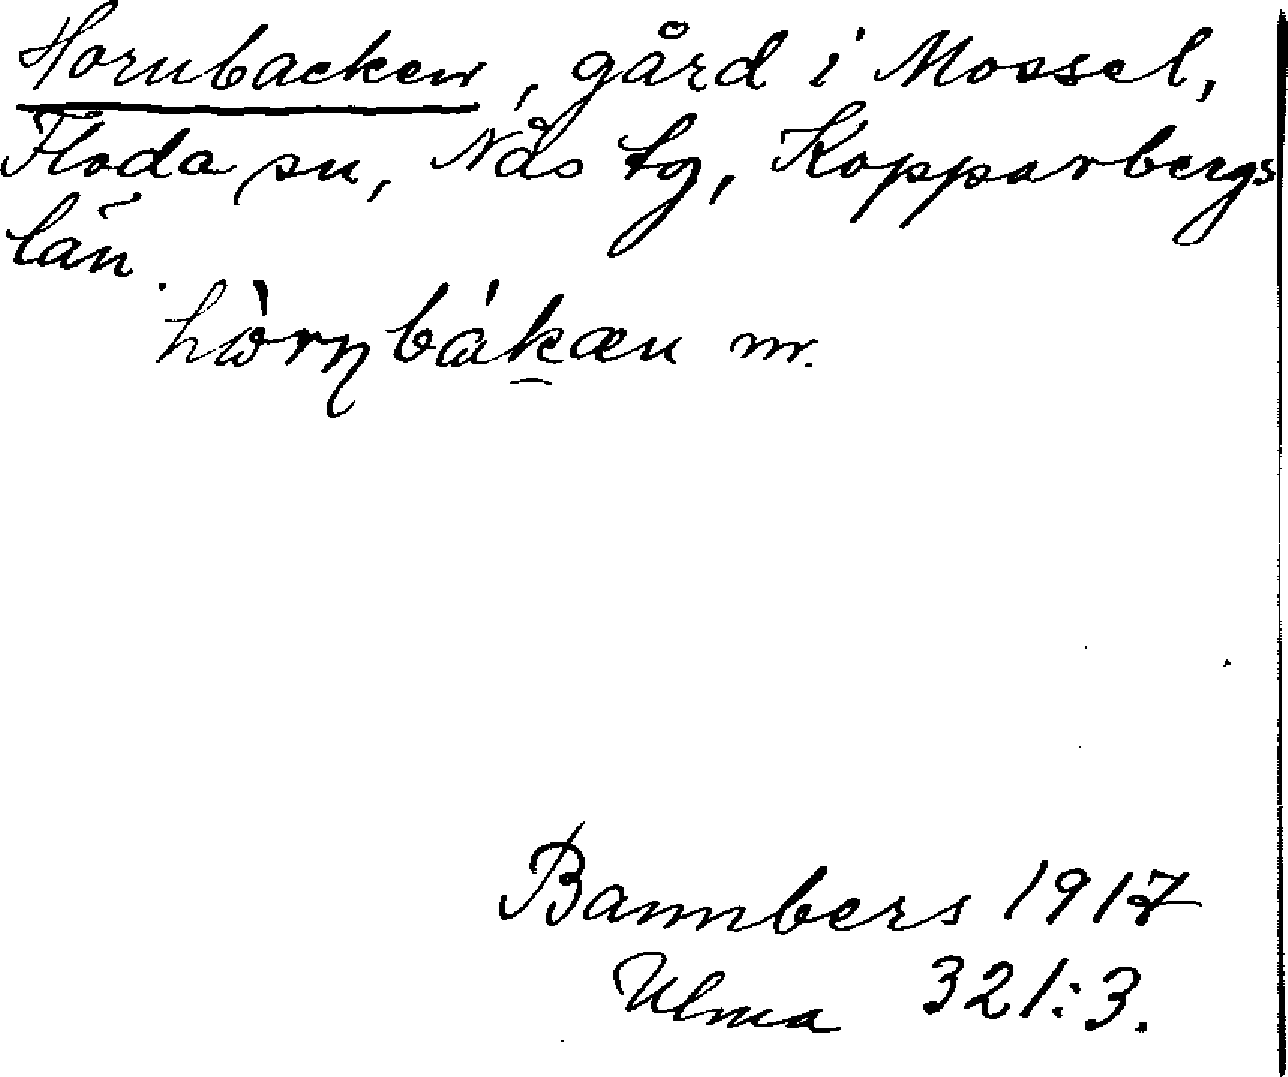 Hornbacken, gård i Mossel,
Floda sn, Nås tg, Kopparbergs
län.
hὼrɳbák̯æn m.
Bannbers 1917
Ulma 321:3.